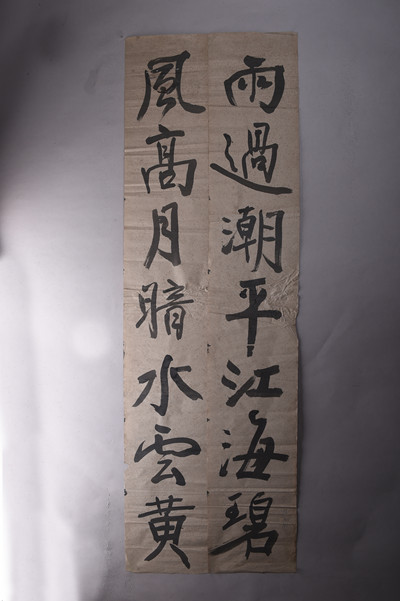 雨過潮平江海碧
風高月暗水雲黄